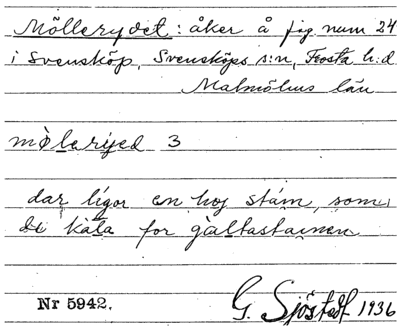 Möllerydet: åker å fig num 24
i Svensköp, Svensköps s:n, Frosta h:d
Malmöhus län
mø̀lerýed 3
dar lígor en hoj stám, som
di kála for gàltastainen
Nr 5942.
G. Sjöstedt 1936